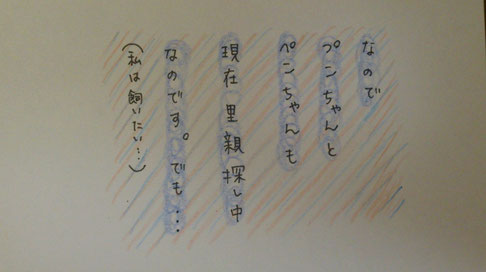 なので
プンちゃんと
ペンちゃんも
現在里親探し中
なのです。でも・・・
(私は飼いたい・・・)